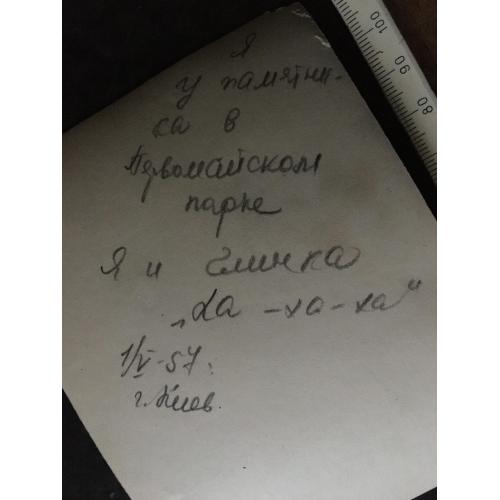 Я
у памятни-
ка в
Первомайском
парке
Я и Глинка
„Ха -ха-ха"
1/V-57.
г. Киев.
100
90
80